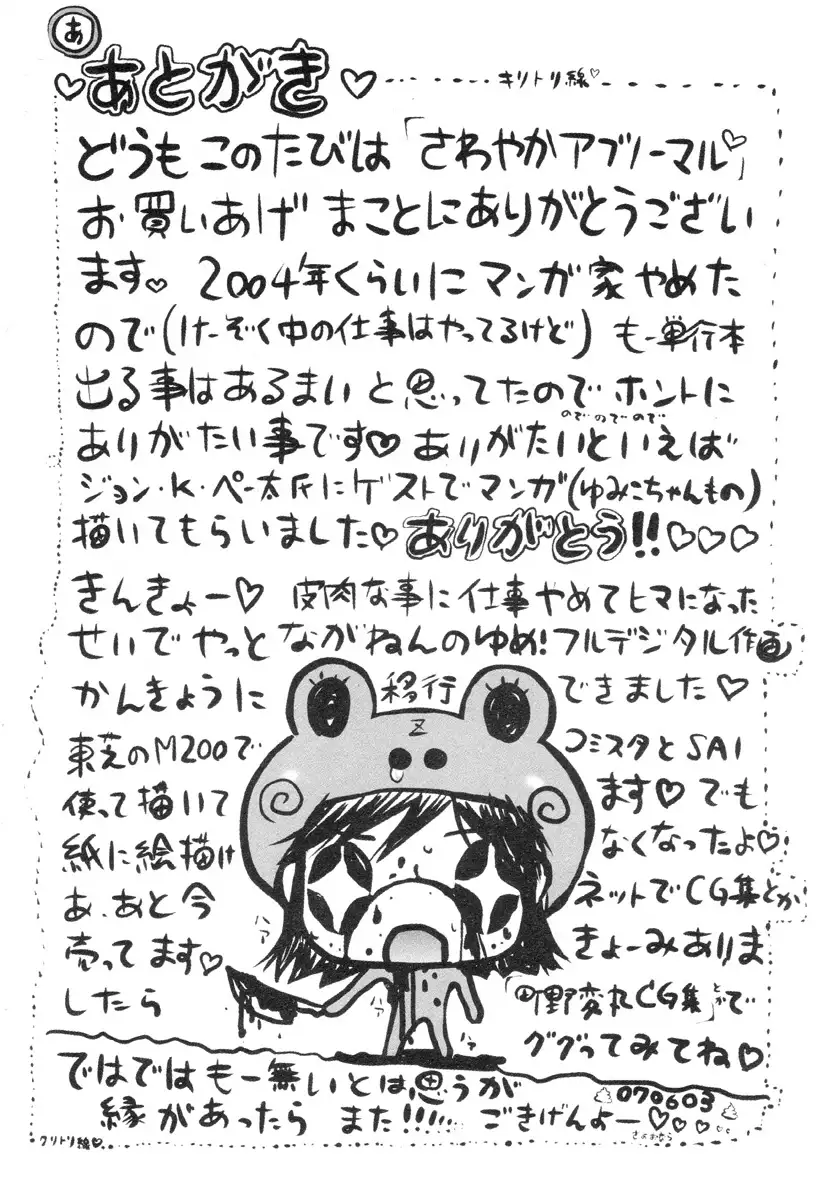 あ
あとがき
キリトリ線
どうも このたびは「さわやかアブノーマル」
お買いあげ まことにありがとうござい
ます♡ 2004年くらいにマンガ家やめた
ので(けーぞく中の仕事はやってるけど) もー単行本
出る事はあるまいと思ってたのでホントに
ありがたい事です♡ ありがたいといえば
のでのでので
ジョン・K・ペー太氏にゲストでマンガ(ゆみこちゃんもの)
描いてもらいました♡ ありがとう!!♡♡♡
きんきょー♡ 皮肉な事に仕事やめてヒマになった
せいでやっとながねんのゆめ!フルデジタル作画
かんきょうに 移行 できました♡
東芝のM200で コミスタとSAI
使って描いて ます♡ でも
紙に絵描け なくなったよ♡
あ、あと今 ネットでCG集とか
売ってます♡ きょーみありま
したら 「町野変丸CG集」とかで
ググってみてね♡
ハァ
ハァ
ハァ
ァ
Z
ではでは もー無いとは思うが
縁があったら また!!!!!! ごきげんよー♡♡♡♡♡
070603
さよおなら
クリトリ線♡